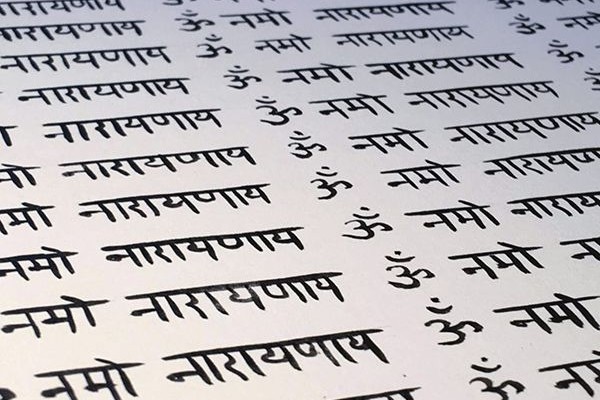 नारायणाय
नारायणाय ॐ नमो नारायणाय
नारायणाय ॐ नमो नारायणाय ॐ
नारायणाय ॐ नमो नारायणाय ॐ
नारायणाय ॐ नमो नारायणाय
नारायणाय ॐ नमो नारायणाय
नमो नारायणाय ॐ नमो नारायणाय
नमो नारायणाय ॐ नमो
नमो नारायणाय ॐ नमो
नमो नारायणाय ॐ नमो
ॐ नमो